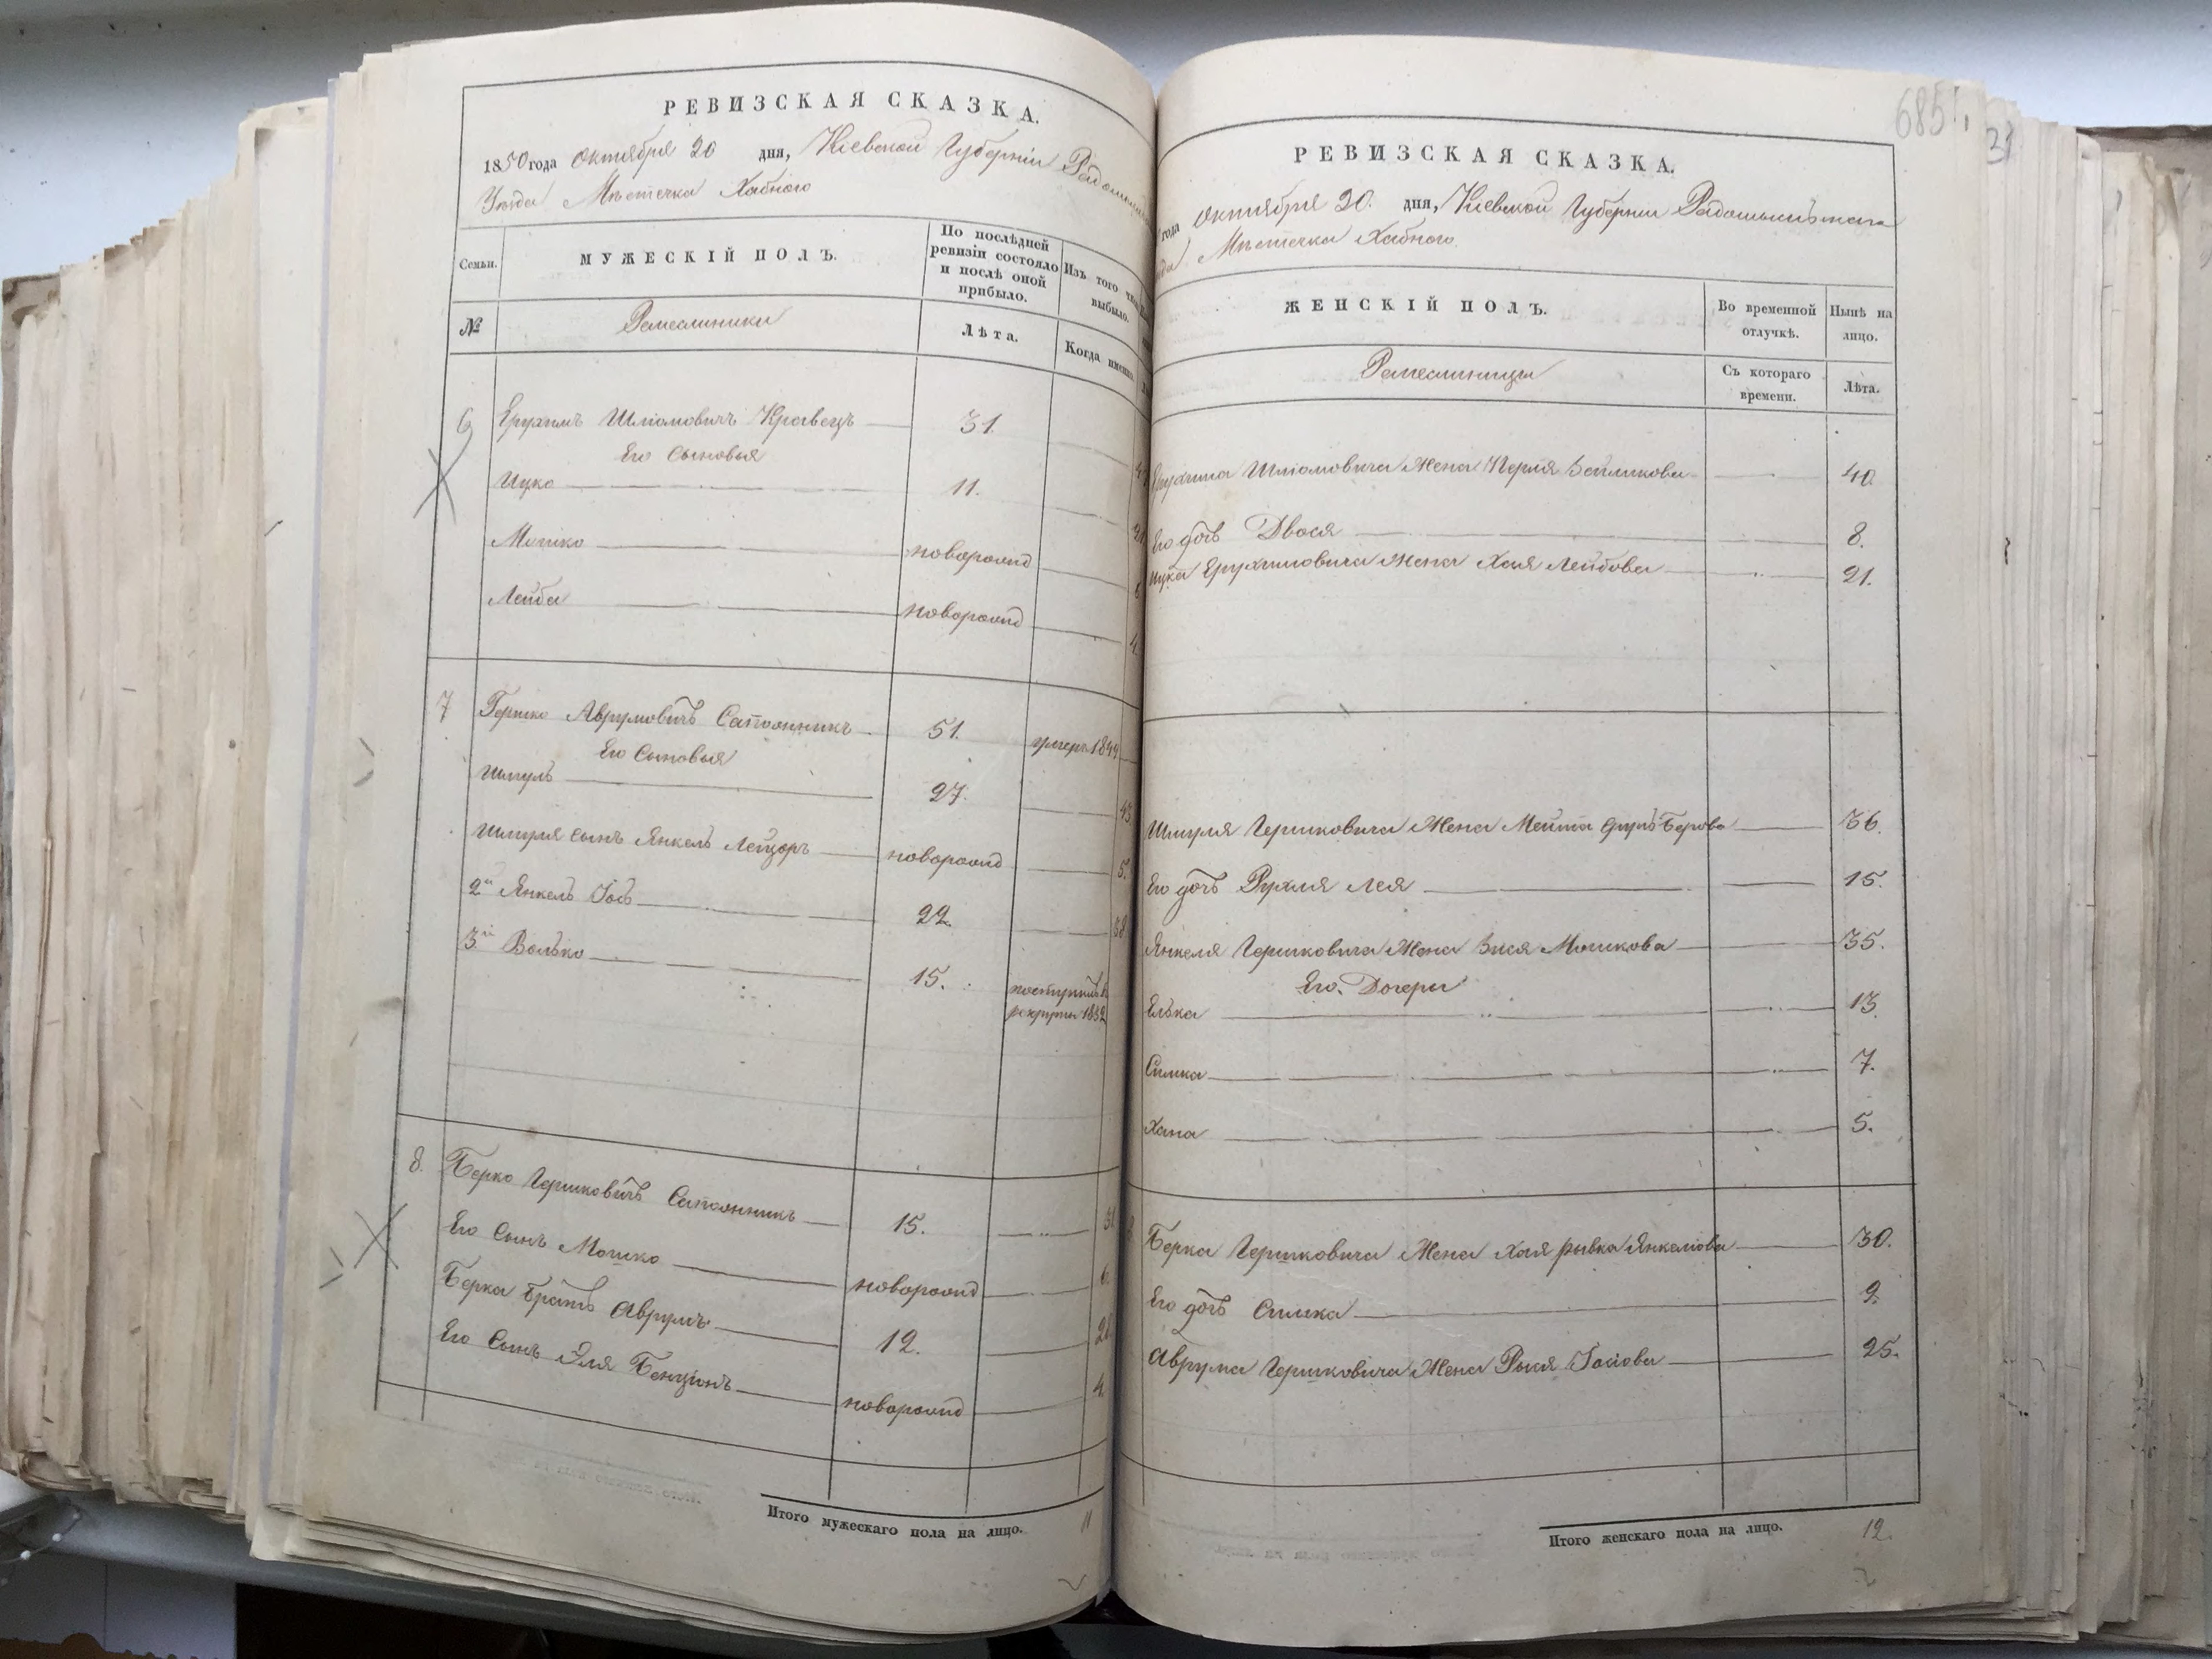 РЕВИЗСКАЯ СКАЗКА.
1850 года октября 20 дня, Кіевской Губерніи
Уѣзда Мѣстечка Хабного
Семьи. МУЖЕСКІЙ ПОЛЪ. По послѣдней ревизіи состояло и послѣ оной прибыло. Изъ того числа выбыло.
№ Ремеслиники Лѣта. Когда именно
6 Ерухимъ Шліомовичъ Кравецъ 31.
Его Сыновья
Ицко 11.
Мошко новорожд
Лейба новорожд
7 Гершко Аврумовичъ Сапожникъ 51. умеръ 1844
Его Сыновья
Шмуль 27. 43
Шмуля сынъ Янкель Лейзоръ новорожд 5.
2й Янкель Іось 22. 38
3й Волько 15. поступилъ в рекруты 1839
8. Берко Гершковичъ Сапожникъ 15. 31
Его Сынъ Мошко новорожд 6.
Берка братъ Аврумъ 12. 28
Его Сынъ Эля Бенціонъ новорожд 4.
Итого мужескаго пола на лицо. 11
685
РЕВИЗСКАЯ СКАЗКА.
года октября 20. дня, Кіевской Губерніи Радомысльскаго
Мѣстечка Хабного.
ЖЕНСКІЙ ПОЛЪ. Во временной отлучкѣ. Нынѣ на лицо.
Ремеслиницы Съ котораго времени. Лѣта.
Ерухима Шліомовича Жена Перля 40.
Его дочь Двося 8.
Ицка Ерухимовича Жена Хая Лейбова 21.
Шмуля Гершковича Жена 36.
Его дочь Рухля Лея 15.
Янкеля Гершковича Жена Зися Мошкова 35.
Его Дочери
Елька 13.
Симка 7.
Хана 5.
Берка Гершковича Жена Хая рывка Янкеліова 30.
Его дочь Симка 9.
Аврума Гершковича Жена Рыся Іосіова 25.
Итого женскаго пола на лицо. 12.